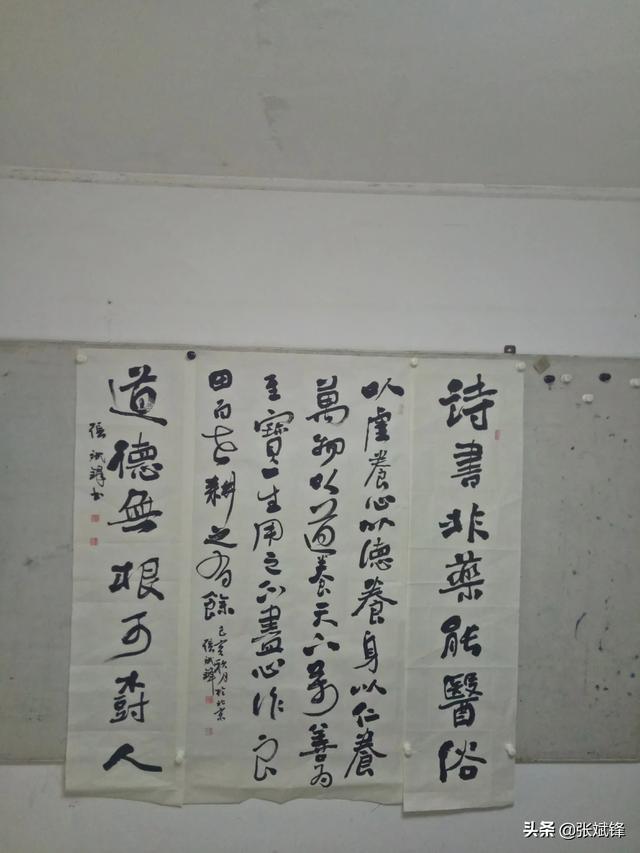 诗書非藥能醫俗
以虛養心以德養身以仁養
萬物以道養天下萬善为
至寶一生用之不盡心作良
田百世耕之有餘
己亥秋月於北京
張斌鋒
道德無根可樹人
張斌鋒书
头条 @张斌锋